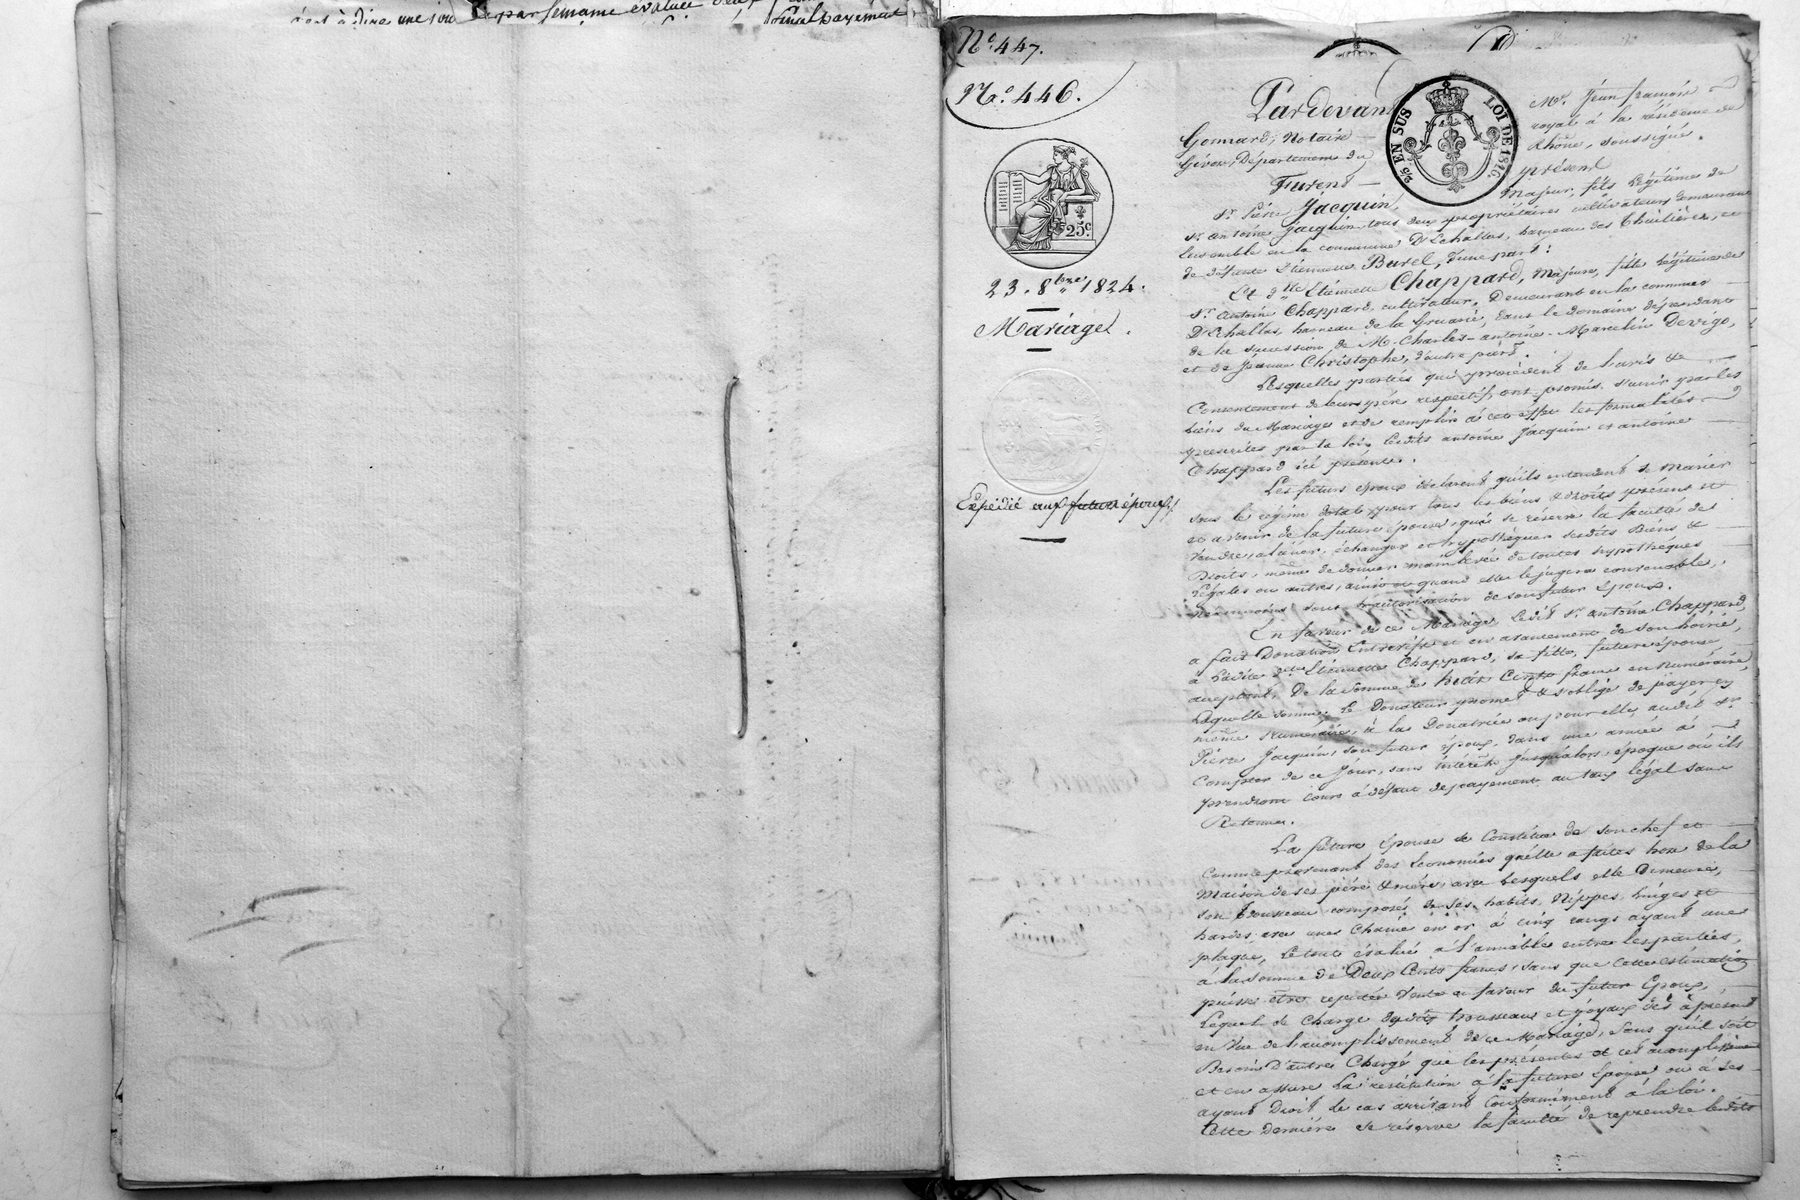 c'est à dire une jou par semaine évaluée deux
final payement,
N.° 447.
N.° 446.
25.c
23. 8bre 1824.
Mariage.
Expédié aux futurs époux
5/2 EN SUS LOI DE 1816.
Pardevant Me. Jean françois
Gonnard, Notaire royal à la résidence de
Givors, Département du Rhône, soussigné.
Furent présent
Sr. Pierre Jacquin, majeur, fils légitime de
Sr. Antoine Jacquin tous deux propriétaires cultivateurs demeurant
Ensemble en la commune D'Echallas, hameau des Thuilières, et
de défunte Etiennette Burel, d'une part:
Et Dlle Etiennette Chappard, Majeure, fille légitime de
Sr. Antoine Chappard, cultivateur, Demeurant en la commune
D'Echallas, hameau de la Gruasie, dans le domaine dépendant
de la succession de M. Charles-antoine-Marcelin Devigo,
et de Jeanne Christophe, d'autre part.
Lesquelles parties qui procèdent de l'avis &
Consentement de leurs père respectifs, ont promis s'unir par les
liens du Mariage et de remplir à cet effet les formalités
prescrites par la loi, lesdits antoine Jacquin et antoine
Chappard ici présents.
Les futurs époux déclarent qu'ils entendent se Marier
sous le régime dotal, pour tous les biens & droits présents et
et avenir de la future épouse, qui se réserve la faculté de
vendre, aliéner, échanger et hypothéquer sesdits Biens &
Droits, même de donner main levée de toutes hypothèques
légales ou autres, ainsi et quand elle le jugera convenable,
néanmoins sous l'autorisation de son futur Epoux.
En faveur de ce Mariage Ledit Sr. antoine Chappard,
a fait Donation Entrevifs et en avancement de son hoirie,
à Ladite Dlle Etiennette Chappard, sa fille, future épouse
acceptant, De la Somme de huit Cents francs en Numéraire,
Laquelle somme Le Donateur promet & s'oblige de payer en
même Numéraire, à la Donatrice ou pour elle, audit Sr.
Pierre Jacquin, son futur époux, dans une année à
Compter de ce Jour, sans intérêts jusqu'alors, époque où ils
prendront cours à défaut de payement au taux légal sans
Retenue.
La future Epouse se Constitue de son chef et
Comme provenant des Economies qu'elle a faites hors de la
Maison de ses père & mère, avec lesquels elle Demeure,
son trousseau composé de ses habits, Nippes, linges et
hardes avec une Chaine en or à cinq rangs ayant une
plaque, le tout évalué à l'amiable entre les parties,
à la Somme de Deux Cents francs, sans que cette estimation
puisse être reputée Vente en faveur du futur Epoux,
Lequel se Charge desdits trousseau et joyaux dès à présent
en Vue de l'accomplissement de ce Mariage, Sans qu'il soit
Besoin D'autre Charge que les présentes et cet accomplissement
et en assure La restitution à la future épouse ou à ses
ayant Droit le cas arrivant Conformément à la loi.
Cette Dernière se réserve la faculté de reprendre lesdits